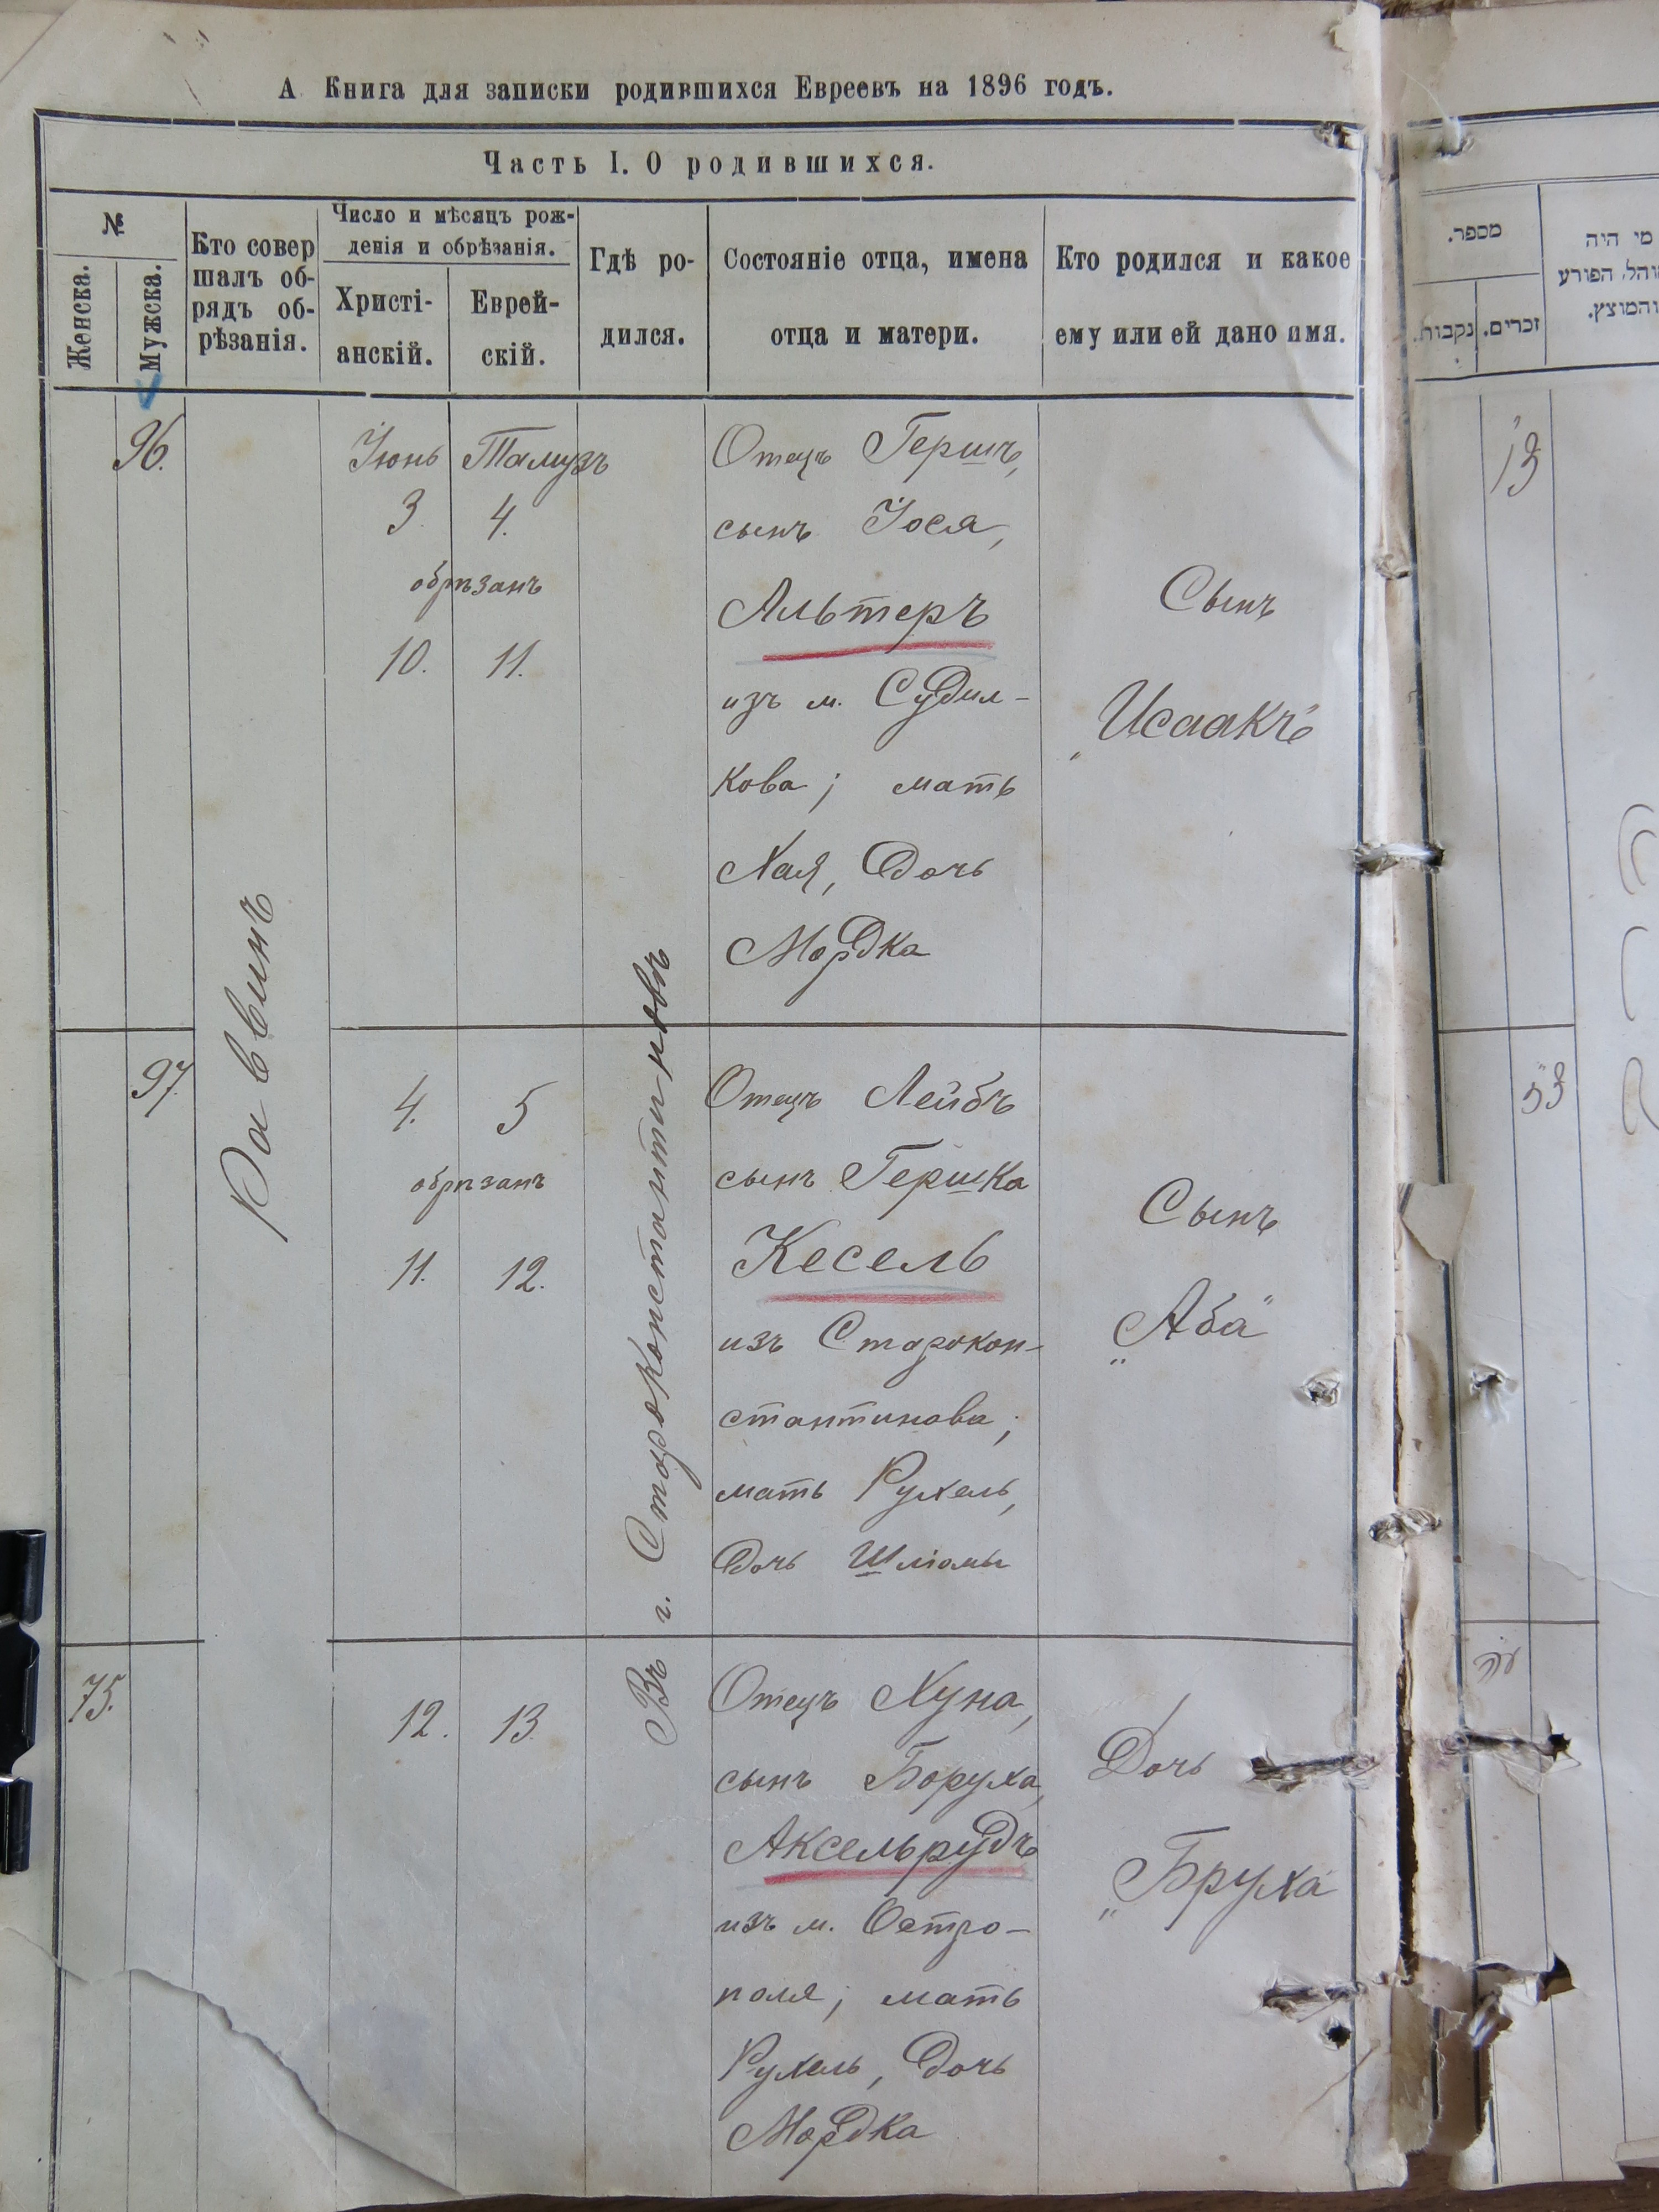 А Книга для записки родившихся Евреевъ на 1896 годъ.
Часть I. О родившихся.
№
Женска.
Мужска.
Кто совер
шалъ об-
рядъ об-
рѣзанія.
Число и мѣсяцъ рож-
денія и обрѣзанія.
Христі-
анскій.
Еврей-
скій.
Гдѣ ро-
дился.
Состояніе отца, имена
отца и матери.
Кто родился и какое
ему или ей дано имя.
Раввинъ
Въ г. Староконстантиновѣ
96.
Іюнь Тамузъ
3 4.
обрѣзанъ
10. 11.
Отецъ Гершъ,
сынъ Іося,
Альтеръ
изъ м. Судил-
кова; мать
Хая, дочь
Мордка
Сынъ
„Исаакъ"
97
4. 5
обрѣзанъ
11. 12.
Отецъ Лейбъ
сынъ Гершка
Кесель
изъ Старокон-
стантинова;
мать Рухель,
дочь Шліомы
Сынъ
„Аба"
75.
12. 13
Отецъ Хуна,
сынъ Боруха,
Аксельрудъ
изъ м. Остро-
поля; мать
Рухель, дочь
Мордка
Дочь
„Бруха"
מספר.
נקבות.
זכרים.
מי היה
הפורע
והמוצץ.